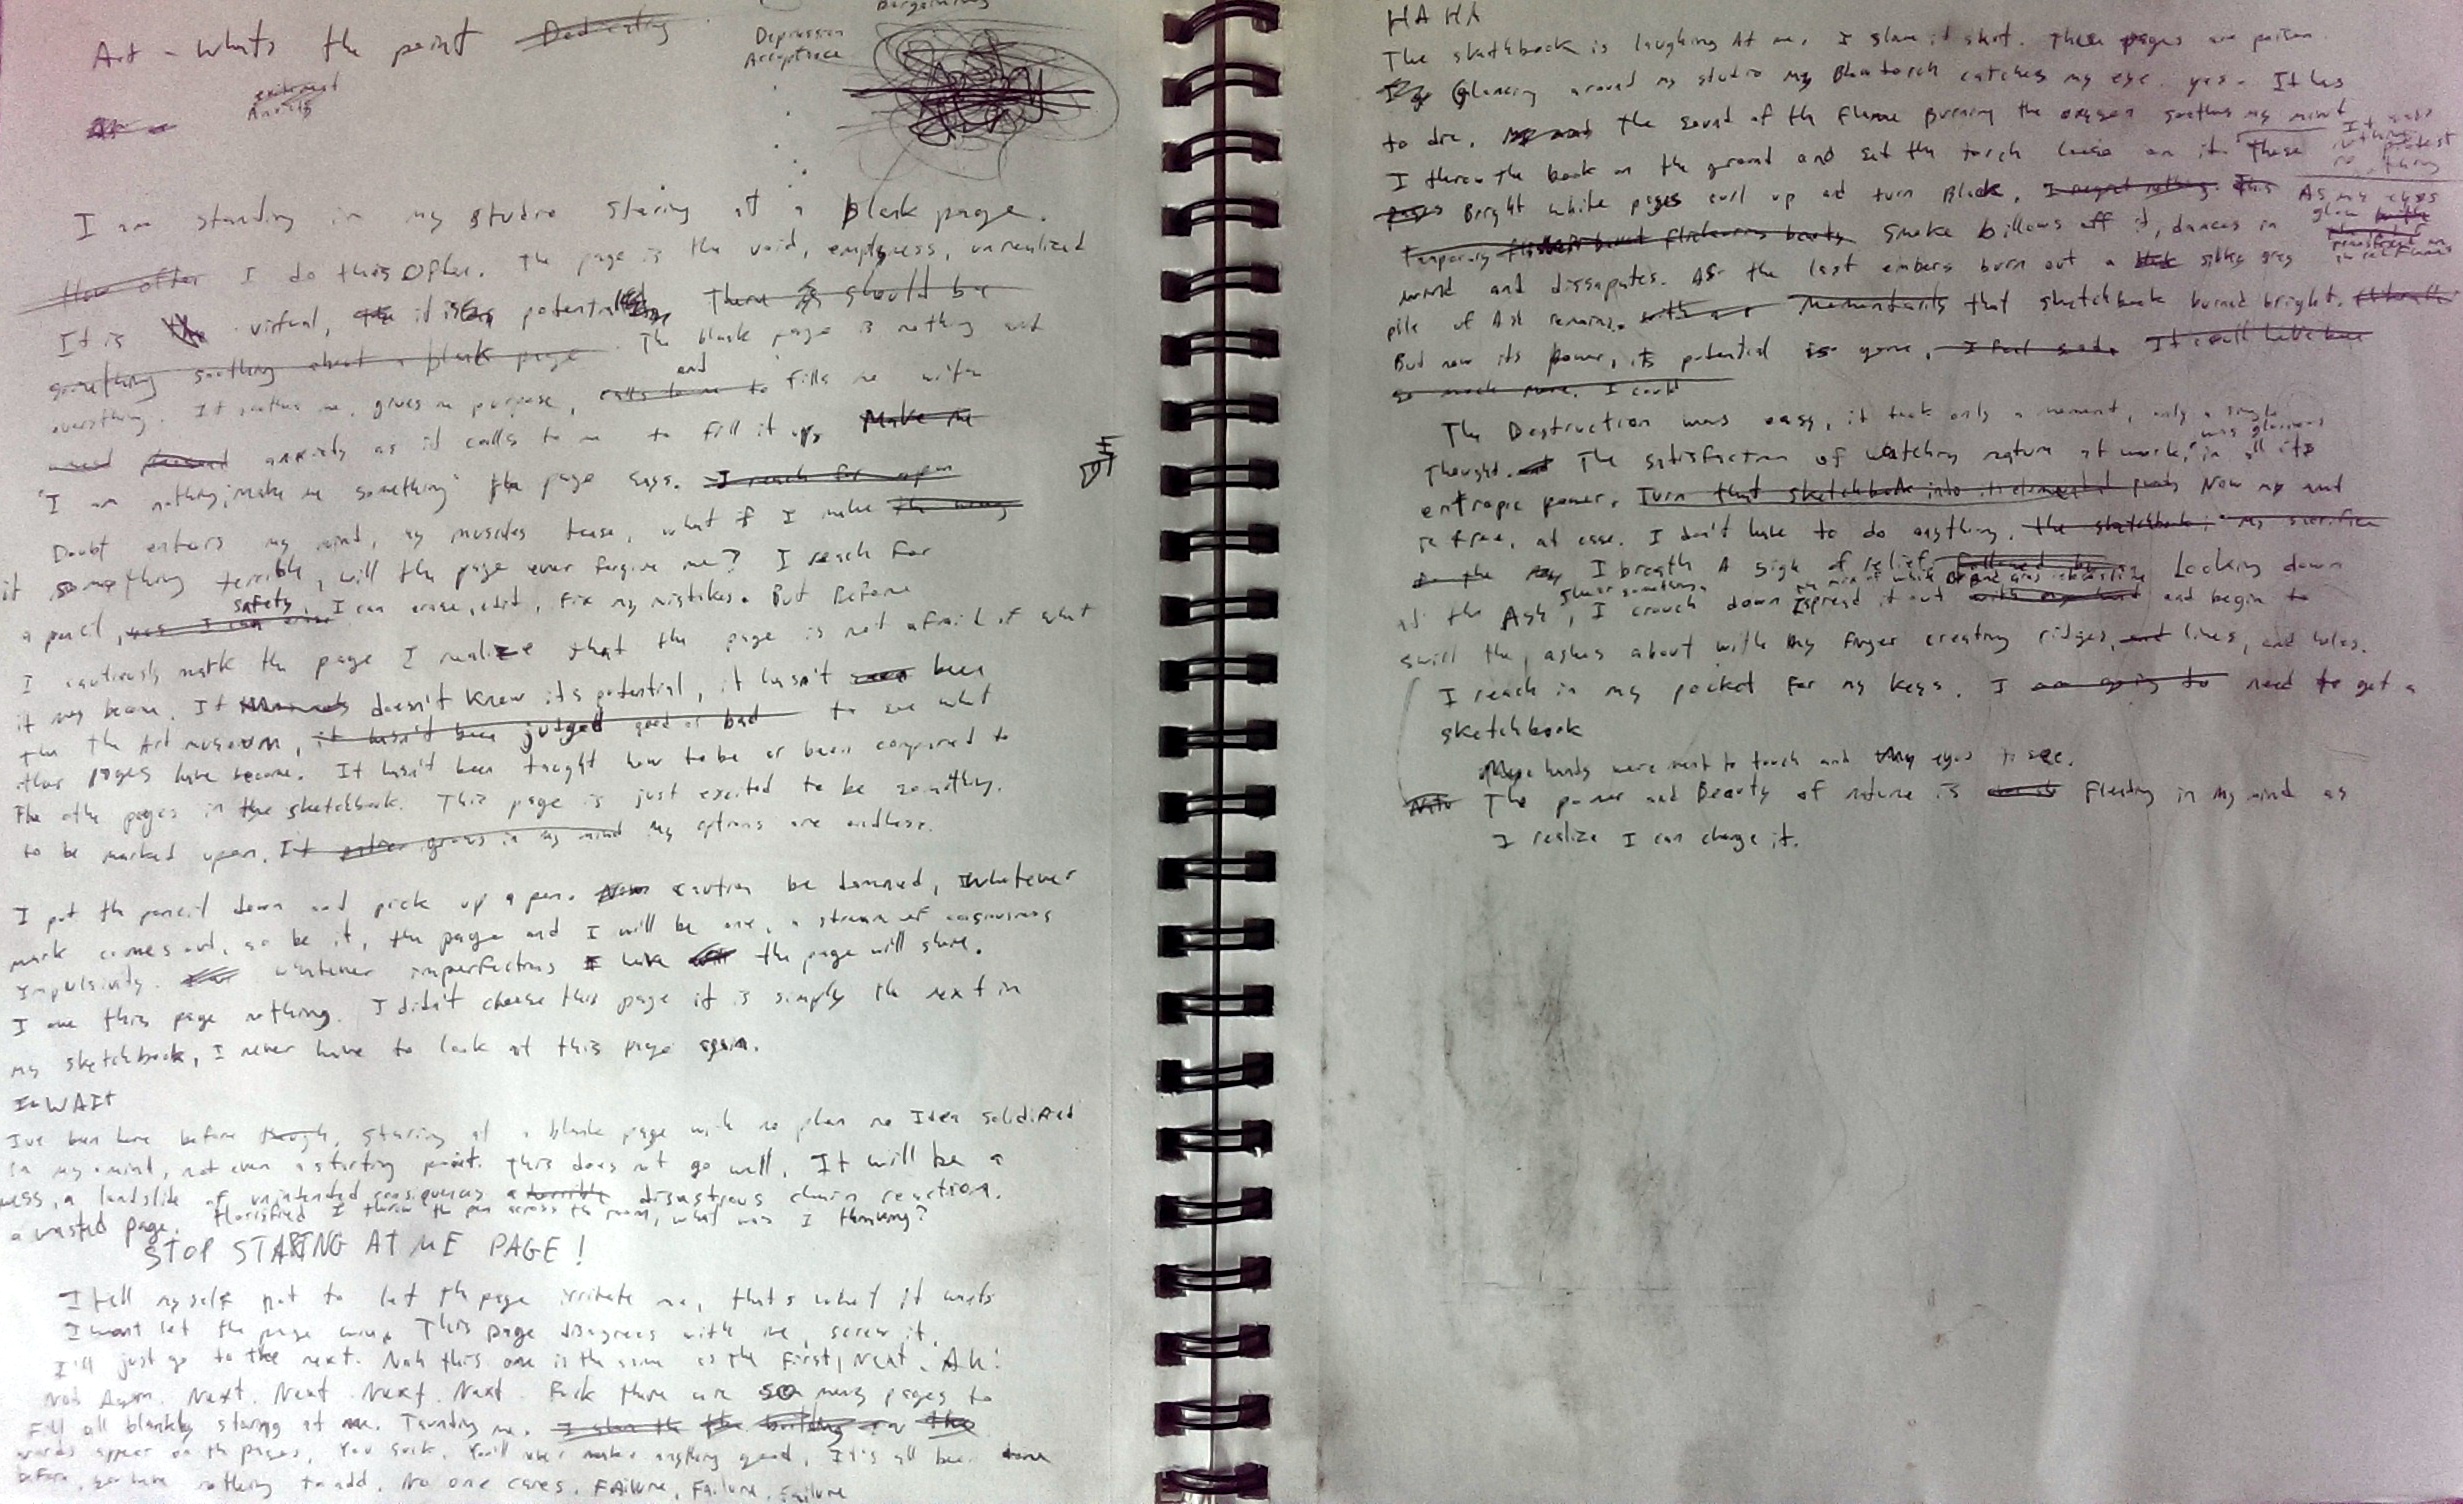 Art - Whats the point Dedicating
Bargaining
Depression
Acceptance
exitement
Anxiety
I am standing in my studio staring at a blank page.
How often I do this often. The page is the void, emptyness, unrealized
It is virtual, it is potential There should be
something soothing about a blank page The blank page is nothing and
everything. It soothes me, gives me purpose, calls to me to and fills me with
anxiety as it calls to me to fill it up, Make me
"I am nothing, make me something" the page says. I reach for a pen
Doubt enters my mind, my muscles tense, what if I make the wrong
it something terrible, will the page ever forgive me? I reach for
a pencil, yes I can erase safety, I can erase, edit, fix my mistakes. But Before
I cautiously mark the page I realize that the page is not afraid of what
it may become. It doesn't know its potential, it hasn't been
to the Art museum, it hasn't been judged good or bad to see what
other pages have become. It hasn't been taught how to be or been compared to
the othe pages in the sketchbook. This page is just excited to be something,
to be marked upon. It grows in my mind My options are endless.
I put the pencil down and pick up a pen. Now caution be damned, whatever
mark comes out, so be it, the page and I will be one, a stream of
Impulsivity. whatever imperfections I have the page will share.
I owe this page nothing. I didn't choose this page it is simply the next in
my sketchbook, I never have to look at this page again.
WAIt
Ive been here before though, staring at a blank page with no plan no Idea solidified
in my mind, not even a starting point. This does not go well. It will be a
mess, a landslide of unintended consequences a terrible disastrous chain reaction.
a wasted page. Horrified I throw the pen across the room, what was I thinking?
STOP STARING AT ME PAGE!
I tell myself not to let the page irritate me, thats what it wants
I wont let the page win. This page disagrees with me, screw it,
I'll just go to the next. Nah this one is the same as the first, Next. Ah!
Not Again. Next. Next. Next. Next. Fuck there are so many pages to
Fill all blankly staring at me. Taunting me. I slam the the
words appear on the pages, You suck. You'll never make anything good, It's all been done
before, you have nothing to add. No one cares. Failure, Failure, Failure
HA HA
The sketchbook is laughing At me. I slam it shut. These pages are poison.
Glancing around my studio my Blowtorch catches my eye. yes. It has
to die. The sound of the flame burning the oxygen soothes my mind
I throw the book on the ground and set the torch loose on it These
pages Bright white pages curl up and turn Black. I regret nothing. This As my eyes
temporary flickering beauty Smoke billows off it, dances in
wind and dissapates. As the last embers burn out a silky grey
pile of Ash remains. Momentarily that sketchbook burned bright.
But now its power, its potential is gone, I feel sad. It could have been
so much more. I could
The Destruction was easy, it took only a moment, only a single
thought. The satisfaction of watching nature at work, was glorious in all its
entropic power. Turn that sketchbook into Now my mind
is free, at ease. I don't have to do anything. the sketchbook; my sacrifice
I breath A sigh of relief, followed by Looking down
at the Ash, I crouch down spread it out and begin to
swirl the ashes about with my finger creating ridges, and lines, and holes.
I reach in my pocket for my keys. I am going to need to get a
sketchbook
These hands were ment to touch and My eyes to see.
The power and Beauty of nature is Fleeting in my mind as
I realize I can change it.